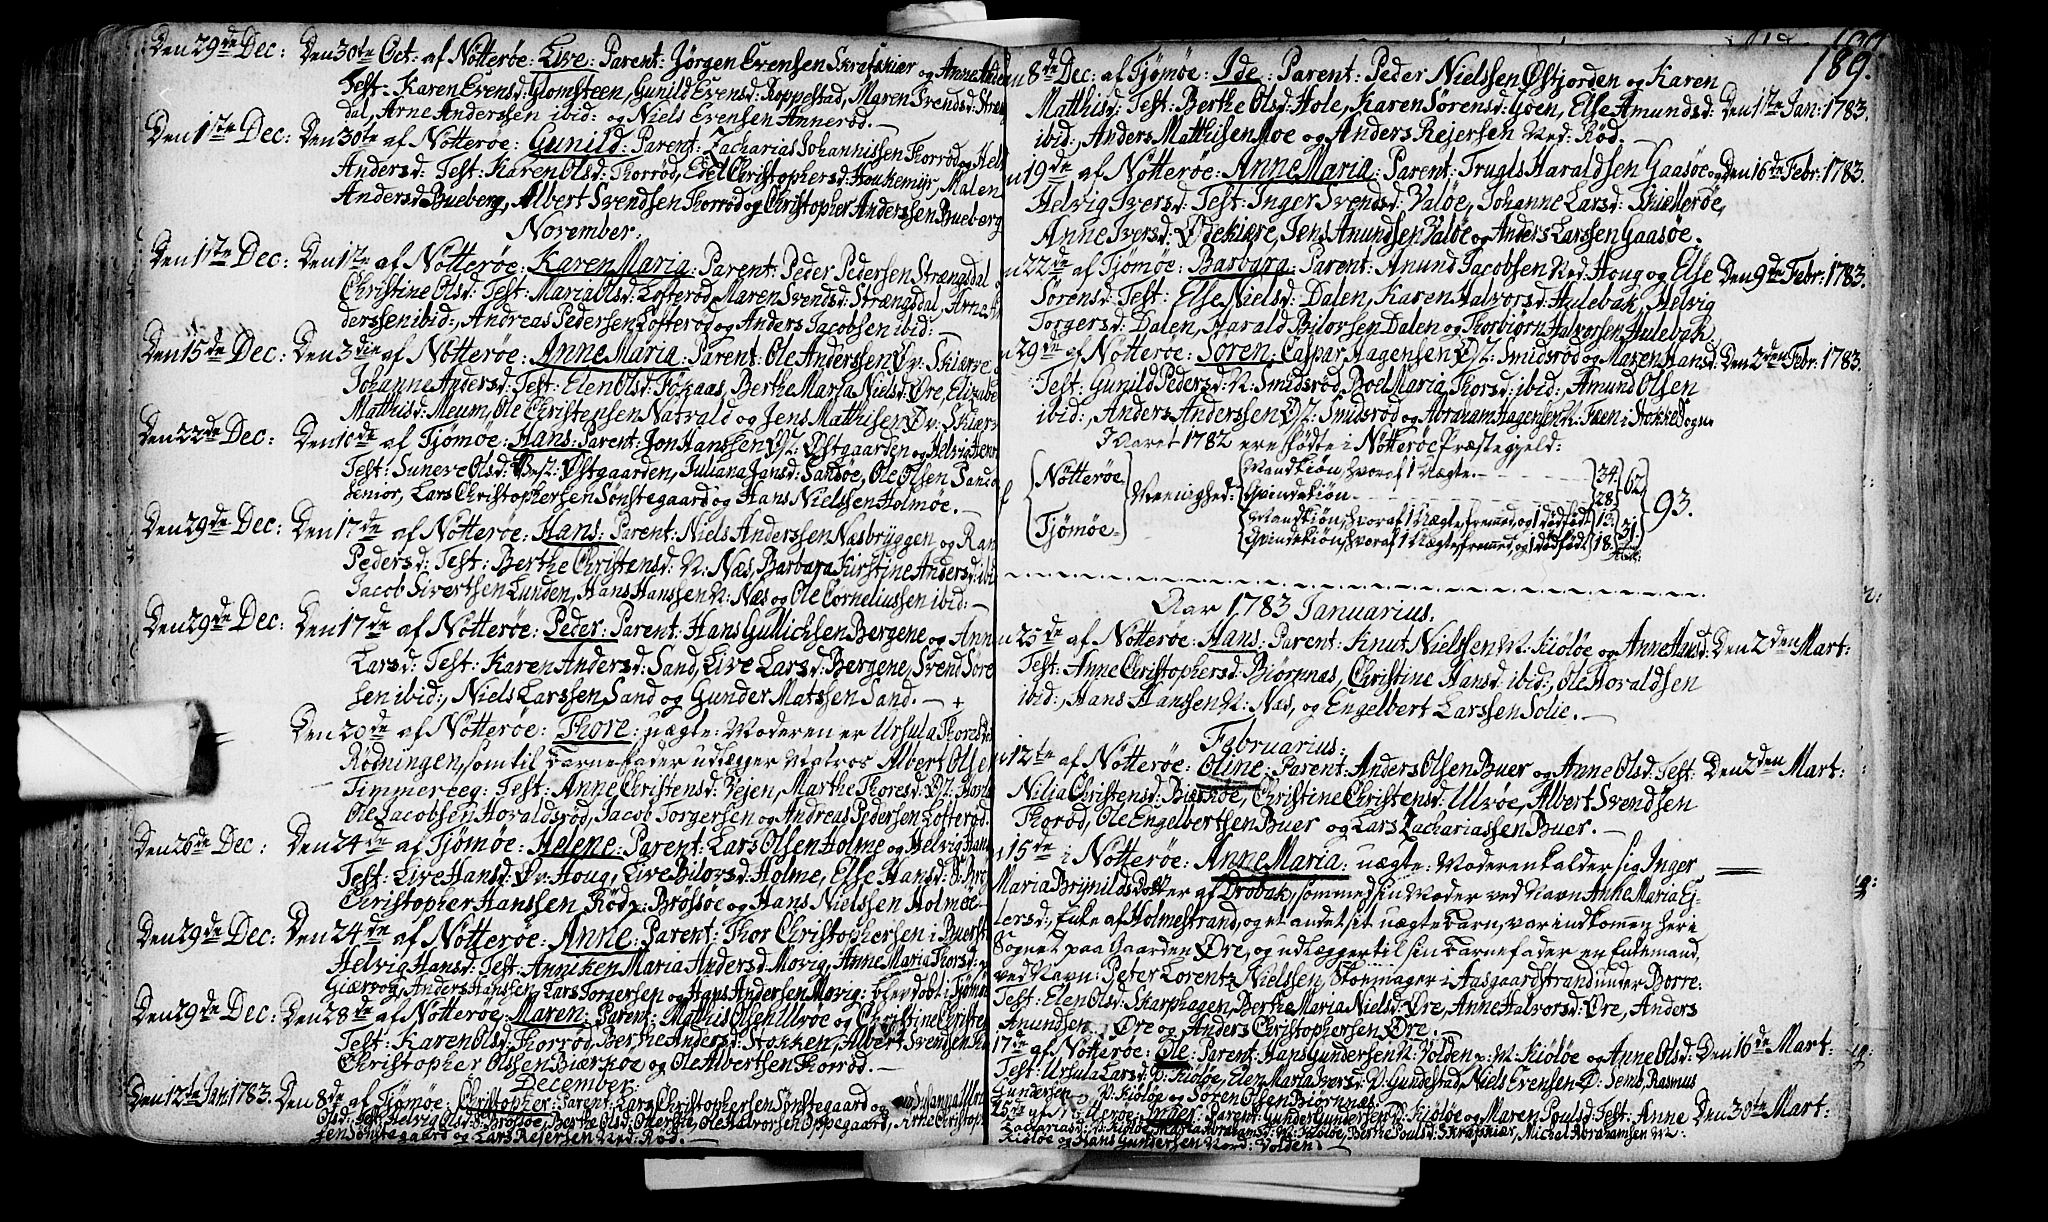 Den 29de Dec: Den 30te Oct: af Nötterøe: Live: Parent: Jörgen Evensen Skrafskiær og Anne
Test: Karen Evensd: Glomsteen, Gunild Evensd: Roppestad, Maren Svendsd: Stræng
dal, Arne Anderssen ibid: og Niels Evensen Annerød.
Den 1ste Dec: Den 30te af Nötterøe: Gunild: Parent: Zacharias Johannissen Thorrød og Hel
Andersd: Test: Karen Olsd: Thorrød, Edel Christophersd: Houkemyr, Malen
Andersd: Bueberg, Albert Svendsen Thorrød og Christopher Anderssen Bueberg
November:
Den 1ste Dec: Den 1ste af Nötterøe: Karen Maria: Parent: Peder Pedersen Strængsdal
Christine Olsd: Test: Maria Olsd: Lofterød, Maren Svendsd: Strængsdal, Arne An
derssen ibid:, Andreas Pedersen Lofterød og Anders Jacobsen ibid:
Den 15de Dec: Den 3die af Nötterøe: Anne Maria: Parent: Ole Anderssen Øv: Skiærve
Johanne Andersd: Test: Elen Olsd: Fökaas, Berthe Maria Nielsd: Øre, Elizabe
Mathisd: Meum, Ole Christensen Natvald og Jens Matthisen Øv: Skiær
Den 22de Dec: Den 10de af Tjømøe: Hans: Parent: Jon Hanssen Øst: Østgaarden og Helvig Hen
Test: Suneve Olsd: Vest: Østgaarden, Juliana Jansd: Sandøe, Ole Olsen Sandø
senior, Lars Christophersen Sønstegaard og Hans Nielssen Holmøe.
Den 29de Dec: Den 17de af Nötterøe: Hans: Parent: Niels Anderssen Nasbryggen og Ran
Pedersd: Test: Berthe Christensd: N: Næs, Barbara Kirstine Andersd: ibid
Jacob Sivertsen Lunden, Hans Hanssen N: Næs og Ole Corneliussen ibid:
Den 29de Dec: Den 17de af Nötterøe: Peder: Parent: Hans Gullichsen Bergene og Anne
Larsd: Test: Karen Andersd: Sand, Live Larsd: Bergene, Svend Sören
sen ibid:, Niels Larssen Sand og Gunder Matssen Sand. +
Den 20de af Nötterøe: Thore: uægte: Moderen er Ursula Thoresd
Rödningen, som til Barnefader udlægger Matros Albert Olsen
Timmeræg: Test: Anne Christensd: Vejen, Marthe Thoresd: Øst:
Ole Jacobsen Hovaldsrød, Jacob Torgersen og Andreas Pedersen Lofterød.
Den 26de Dec: Den 24de af Tjømøe: Helene: Parent: Lars Olsen Holme og Helvig Hans
Test: Live Hansd: Øv: Houg, Live Bilovsd: Holme, Else Hansd: S: Brö
Christopher Hanssen Röd p: Brøtsøe og Hans Nielssen Holmøe
Den 29de Dec: Den 24de af Nötterøe: Anne: Parent: Thor Christophersen i Buerst
Helvig Hansd: Test: Anniken Maria Andersd: Movig, Anne Maria Thorsd:
Giærvog, Anders Hanssen, Lars Torgersen og Hans Andersen Movig: blev döbt i Tjømø
Den 29de Dec: Den 28de af Nötterøe: Maren: Parent: Mathis Olsen Ulvøe og Christine Christen
Test: Karen Olsd: Thorrød, Berthe Andersd: Stokken, Albert Svendsen
Christopher Olssen Biærkøe og Ole Albertsen Thorrød.
December:
Den 12te Jan: 1783. Den 8de af Tjømøe: Christopher: Parent: Lars Christophersen Sønstegaard og
Olsd: Test: Helvig Olsd: Brøtsøe, Berthe Olsd: Ole Halvorsen Oppegaard, Arne Christoph
sen Sønstegaard og Lars Rejersen Ned: Röd.
189.
8de Dec: af Tjømøe: Ide: Parent: Peder Nielssen Østjorden og Karen
Matthisd: Test: Berthe Olsd: Hole, Karen Sørensd: Goen, Else Amundsd: Den 1ste Jan: 1783.
ibid:, Anders Matthisen Moe og Anders Rejersen Ned: Rød.
19de af Nötterøe: Anne Maria: Parent: Trugls Haraldsen Gaasøe og Den 16de Febr: 1783.
Helvig Iversd: Test: Inger Svendsd: Valøe, Johanne Larsd: Skiellerøe,
Anne Iversd: Ødekiere, Jens Amundsen Valøe og Anders Larssen Gaasøe.
22de af Tjømøe: Barbara: Parent: Anund Jacobsen Ned: Houg og Else Den 9de Febr: 1783.
Sörensd: Test: Else Nielsd: Dalen, Karen Halvorsd: Hulebak, Helvig
Torgersd: Dalen, Harald Bilovsen Dalen og Thorbiørn Halvorsen Hulebak.
29de af Nötterøe: Sören: Caspar Hagensen Øst: Smidsrød og Maren Hansd: Den 2den Febr: 1783.
Test: Gunild Pedersd: N: Smidsrød, Boel Maria Thorsd: ibid: Amund Olsen
ibid:, Anders Anderssen Øst: Smidsrød og Abraham Hagensen N: Faen i Stokke Sogn
I Aaret 1782 ere fødte i Nötterøe Præstegjeld:
Nötterøe Meenighed: Mandkiøn, hvoraf 1 Uægte 34. 62.
Qvindekiøn 28. 93.
Tjømøe Mandkiøn, hvoraf 1 Uægte, fremmed, og 1 dødfødt 13. 31.
Qvindekiøn, hvoraf 1 Uægte, fremmed, og 1 dødfødt 18.
Aar 1783 Januarius.
25de af Nötterøe: Hans: Parent: Knut Nielssen M: Kiöløe og Anne Hansd: Den 2den Mart:
Test: Anne Christophersd: Biörnnæs, Christine Hansd: ibid:, Ole Hovaldsen
ibid:, Hans Hanssen N: Næs, og Engelbert Larssen Solie.
Februarius:
12te af Nötterøe: Oline: Parent: Anders Olsen Buer og Anne Olsd: Test: Den 2den Mart:
Nilia Christensd: Biærkøe, Christine Christensd: Ulvøe, Albert Svendsen
Thorød, Ole Engelbertsen Buer og Lars Zachariassen Buer.
15de i Nötterøe: Anne Maria: uægte: Moderen kalder sig Inger
Maria Brynildsdotter af Drøbak, som med sin Moder ved Navn Anne Maria Ej
lersd:, Enke af Holmestrand, og et andet sit uægte Barn, var indkommen her i
Sognet paa Gaarden Øre, og udlægger til sin Barnefader en Enkemand,
ved Navn: Peter Lorentz Nielssen, Skoemager i Aasgaardstrand under Borre:
Test: Elen Olsd: Skarphagen, Berthe Maria Nielsd: Øre, Anne Halvorsd: Øre, Anders
Amundsen Øre og Anders Christophersen Øre.
17de af Nötterøe: Ole: Parent: Hans Gundersen N: Volden p: M: Kiöløe og Anne Olsd: Den 16de Mart:
Test: Ursula Larsd: V: Kiöløe, Elen Maria Iversd: V: Gundestad, Niels Evensen Ø: Semb, Rasmus
Gundersen V: Kiöløe og Sören Olsen Biørnnæs
25de af Nötterøe: Inger: Parent: Gunder Gundersen V: Kiöløe og Maren Poulsd: Test: Anne Den 30te Mart:
Zachariasd: V: Kiöløe, Marta Abrahamsd: M: Kiöløe, Berthe Poulsd: Skrafskiær, Michel Abrahamsen M:
Kiöløe og Hans Gundersen Nord: Volden.